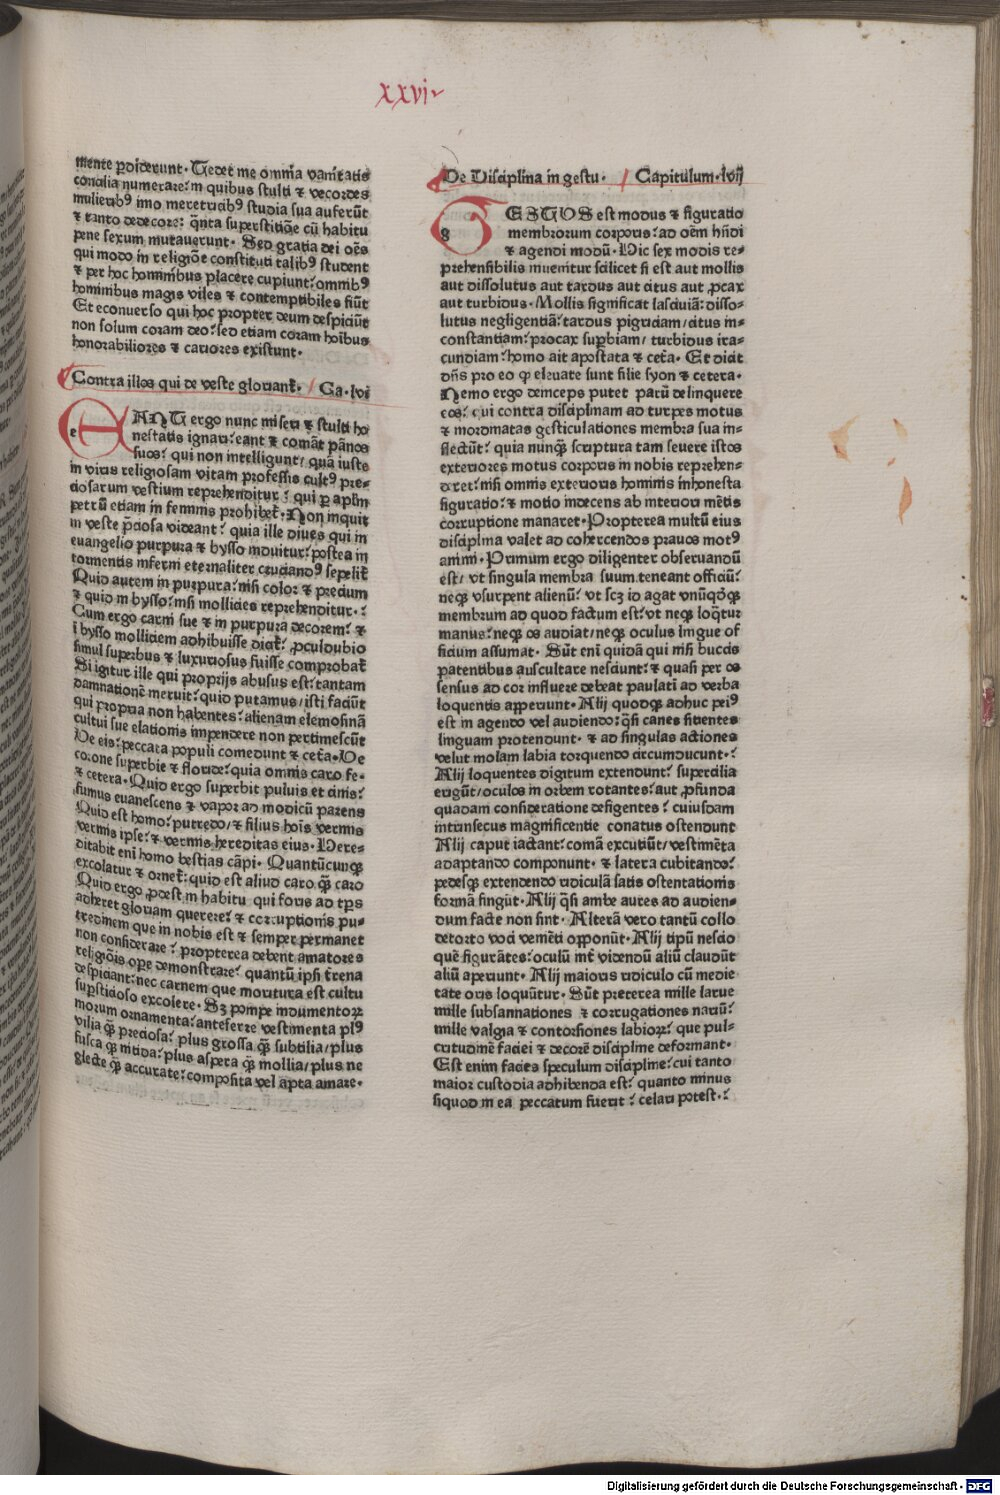 xxvi
mente ꝑdiderunt. Tedet me omnia vanitatis
concilia numerare: in quibus stulti ⁊ vecordes
mulierib⁹ imo meretricib⁹ studia sua auferūt
⁊ tanto dedecore: q̄nta superstitiōe cū habitu
pene sexum mutauerunt. Sed gratia dei oēs
qui modo in religiōe constituti talib⁹ student
⁊ per hoc hominibus placere cupiunt: omnib⁹
hominibus magis viles ⁊ contemptibiles fiūt
Et econuerso qui hoc propter deum despiciūt
non solum coram deo: sed etiam coram hoībus
honorabiliores ⁊ cariores existunt.
Contra illos qui de veste gloriant̄. Ca. lvi
EANT ergo nunc miseri ⁊ stulti ho
nestatis ignari: eant ⁊ comāt pānos
suos: qui non intelligunt/ quā iuste
in viris religiosam vitam professis cult⁹ pre-
ciosarum vestium reprehenditur: qui ꝑ apl̄m
petrū etiam in feminis prohibet̄. Non inquit
in veste p̄ciosa videant: quia ille diues qui in
euangelio purpura ⁊ bysso induitur: postea in
tormentis inferni eternaliter cruciand⁹ sepelit̄
Quid autem in purpura: nisi color ⁊ precium
⁊ quid in bysso: nisi mollicies reprehenditur.:
Cum ergo carni sue ⁊ in purpura decorem: ⁊
ī bysso molliciem adhibuisse dicat̄: ꝓculdubio
simul superbus ⁊ luxuriosus fuisse comprobat̄
Si igitur ille qui proprijs abusus est: tantam
damnationē meruit: quid putamus/ isti faciūt
qui propria non habentes: alienam elemosinā
cultui sue elationis impendere non pertimescūt
De eis: peccata populi comedunt ⁊ cet̄a. De
corone superbie ⁊ floride: quia omnis caro fe-
⁊ cetera. Quid ergo superbit puluis et cinis:
fumus euanescens ⁊ vapor ad modicū parens
Quid est homo: putredo/ ⁊ filius hoīs vermis
vermis ipse: ⁊ vermis hereditas eius. Here-
ditabit enī homo bestias cāpi. Quantūcunqꝫ
excolatur ⁊ ornet̄: quid est aliud caro qꝫ̄ caro
Quid ergo ꝓdest in habitu qui foris ad tp̄s
adheret gloriam querere: ⁊ corruptionis pu-
tredinem que in nobis est ⁊ semper permanet
non considerare: propterea debent amatores
religiōis oꝑe demonstrare: quantū ipsi t̄rena
despiciant: nec carnem que moritura est cultu
suꝑsticioso excolere. Sꝫ pompe indumentoꝝ
morum ornamenta: anteferre vestimenta pl⁹
vilia qꝫ̄ preciosa: plus grossa qꝫ̄ subtilia/ plus
fusca qꝫ̄ nitida: plus aspera qꝫ̄ mollia/ plus ne
glecte qꝫ̄ accurate: composita vel apta amare.
De Disciplina in gestu. Capitulum. lvij
GESTUS est modus ⁊ figuratio
membrorum corporis: ad oēm hn̄di
⁊ agendi modū. Hic sex modis re-
prehensibilis inuenitur scilicet si est aut mollis
aut dissolutus aut tardus aut citus aut ꝓcax
aut turbidus. Mollis significat lasciuiā: disso-
lutus negligentiā: tardus pigriciam/ citus in-
constantiam: procax suꝑbiam/ turbidus ira-
cundiam: homo ait apostata ⁊ cet̄a. Et dicit
dn̄s pro eo ꝙ eleuate sunt filie syon ⁊ cetera.
Nemo ergo deinceps putet parū delinquere
eos: qui contra disciplinam ad turpes motus
⁊ inordinatas gesticulationes membra sua in-
flectūt: quia nunqꝫ̄ scriptura tam seuere istos
exteriores motus corporis in nobis reprehen-
deret: nisi omnis exterioris hominis inhonesta
figuratio: ⁊ motio indecens ab interiori mētis
corruptione manaret. Propterea multū eius
disciplina valet ad cohercendos prauos mot⁹
animi. Primum ergo diligenter obseruandū
est/ vt singula membra suum teneant officiū:
neqꝫ vsurpent alienū: vt scꝫ id agat vnūqd̄qꝫ
membrum ad quod factum est: vt neqꝫ loq̄tur
manus: neqꝫ os audiat/ neqꝫ oculus lingue of
ficium assumat. Sūt enī quidā qui nisi buccis
patentibus auscultare nesciunt: ⁊ quasi per os
sensus ad cor influere debeat paulatī ad verba
loquentis apperiunt. Alij quodqꝫ adhuc pei⁹
est in agendo vel audiendo: q̄si canes sitientes
linguam protendunt. ⁊ ad singulas actiones
velut molam labia torquendo circumducunt.:
Alij loquentes digitum extendunt: supercilia
erigūt/ oculos in orbem rotantes: aut ꝓfunda
quadam consideratione defigentes: cuiusdam
intrinsecus magnificentie conatus ostendunt
Alij caput iactant: comā excutiūt/ vestimēta
adaptando componunt. ⁊ latera cubitando:
pedesqꝫ extendendo ridiculā satis ostentationis
formā fingūt. Alij q̄si ambe aures ad audien-
dum facte non sint. Alterā vero tantū collo
detorto voci veniēti opponūt. Alij tipū nescio
quē figurātes: oculū int̄ videndū aliū claudūt
aliū aperiunt. Alij maioris ridiculo cū medie
tate oris loquūtur. Sūt preterea mille larue
mille subsannationes ⁊ corrugationes nariū:
mille valgia ⁊ contorsiones labioꝝ: que pul-
critudinē faciei ⁊ decorē discipline deformant.
Est enim facies speculum discipline: cui tanto
maior custodia adhibenda est: quanto minus
siquod in ea peccatum fuerit: celari potest.:
Digitalisierung gefördert durch die Deutsche Forschungsgemeinschaft - DFG